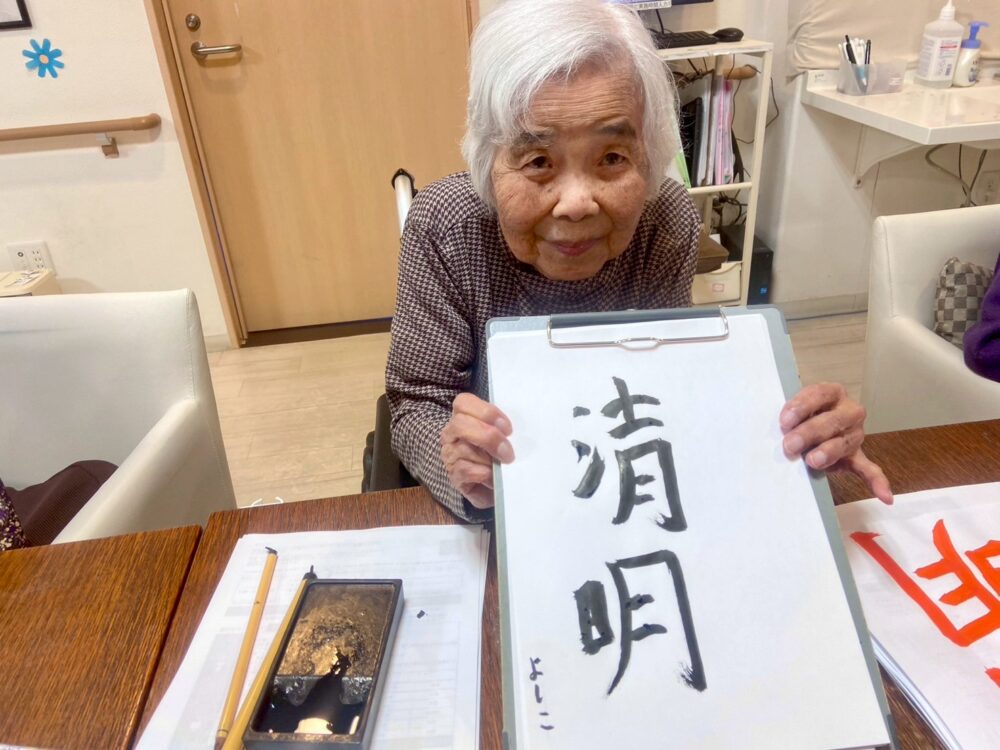 清明
よしこ